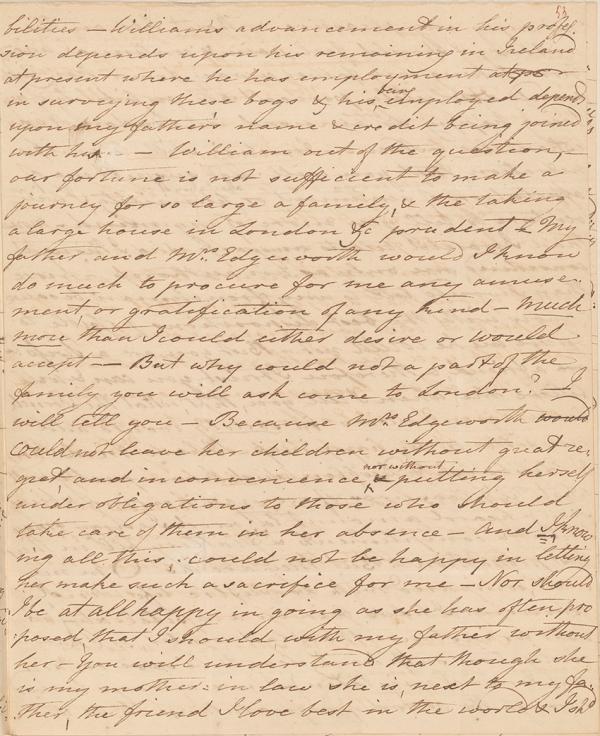 53
bilities – William's advancement in his profes,
sion depends upon his remaining in Ireland
at present where he has employment
in surveying these bogs & his being employed depends
upon my father's name & credit being joined
with his – William out of the question, –
our fortune is not sufficient to make a
journey for so large a family, & the taking
a large house in London &c prudent – My
father and Mrs. Edgeworth would I know
do much to procure for me any amuse-
ment or gratification of any kind – much
more than I could either desire or would
accept – But why could not a part of the
family you will ask come to London? – I
will tell you – Because Mrs. Edgeworth would
could not leave her children without great re,
gret, and inconvenience nor without putting herself
under obligations to those who should
take care of them in her absence – And I know
ing all this, could not be happy in letting
her make such a sacrifice for me – Nor should
I be at all happy in going as she has often pro
posed, that I should with my father without
her – You will understand that though she
is my mother-in law she is, next to my fa-
ther, the friend I love best in the world & I shd